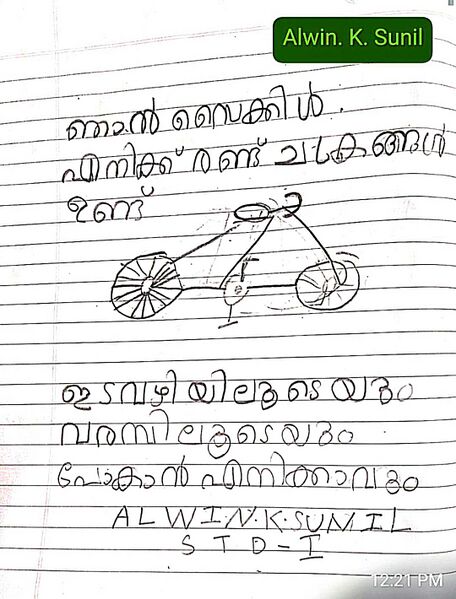 Alwin. K. Sunil
ഞാൻ സൈക്കിൾ.
എനിക്ക് രണ്ട് ചക്രങ്ങൾ
ഉണ്ട്
ഇടവഴിയിലൂടെയും
വരമ്പിലൂടെയും
പോകാൻ എനിക്കാവും
ALWIN.K.SUNIL
STD-I
12:21 PM